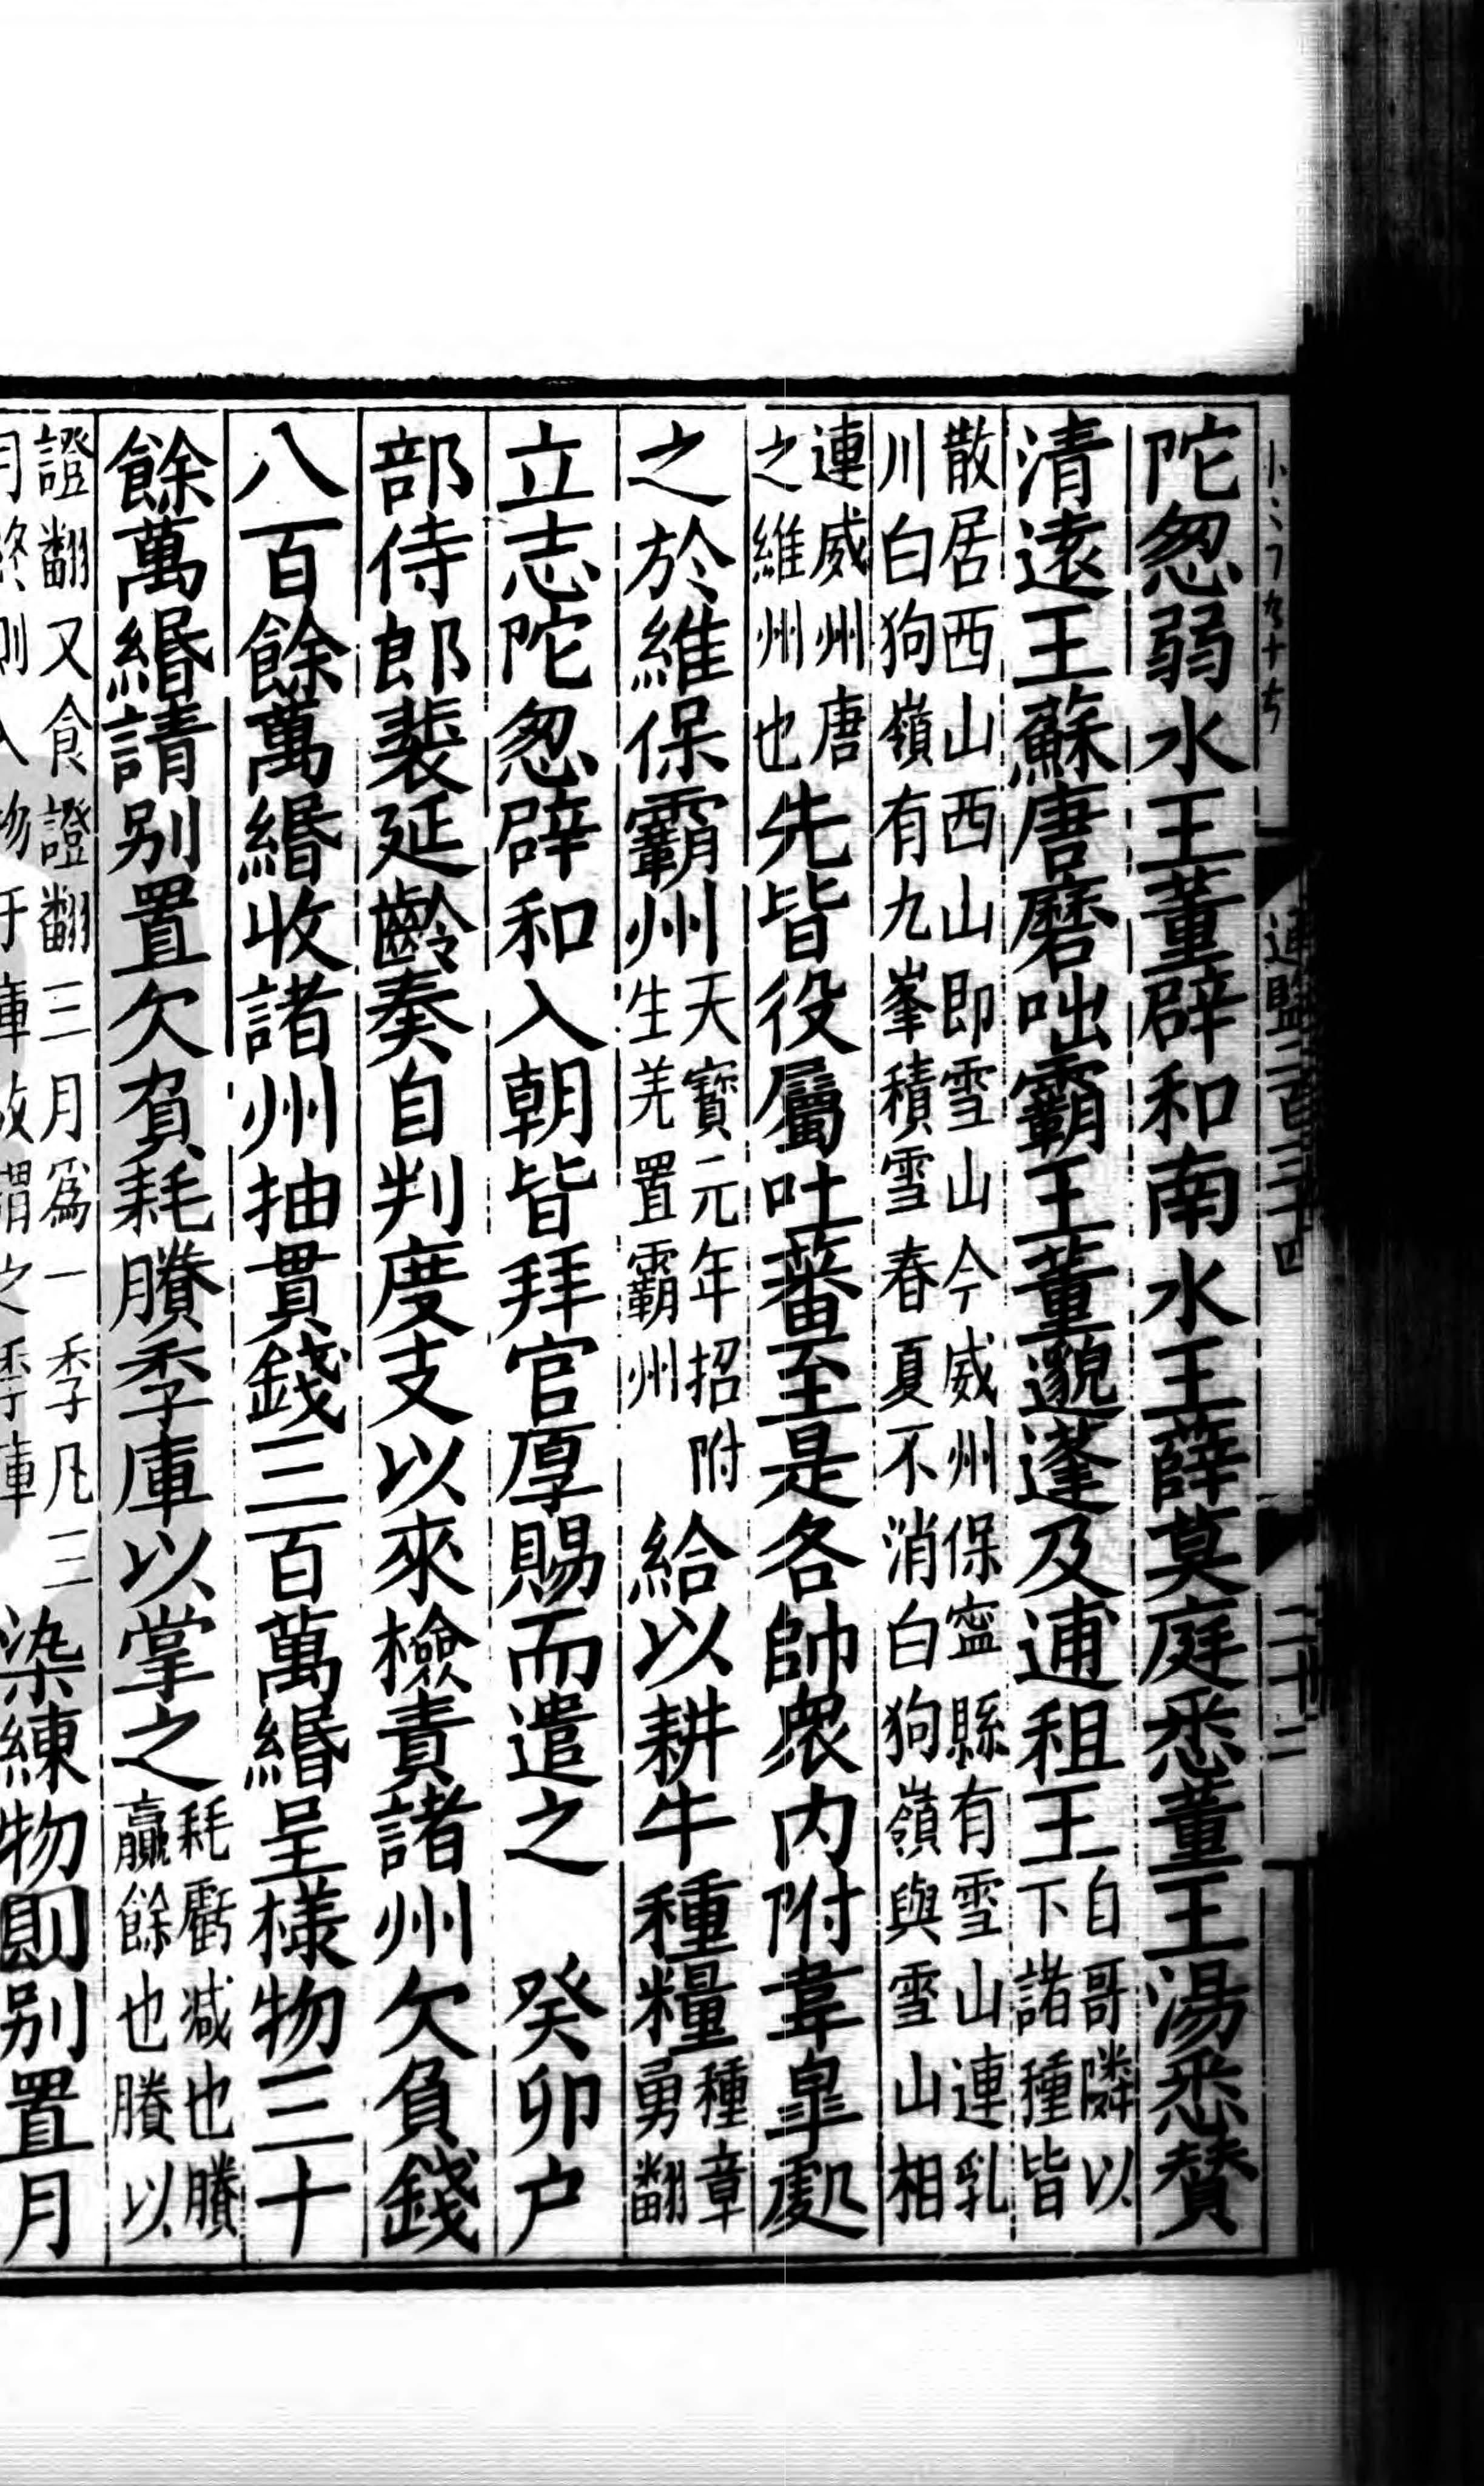 陀怱弱水王董辟和南水王薛莫庭悉董王湯悉贊
清遠王蘇唐磨咄霸王董邈蓬及逋租王自哥隣以下諸種皆
散居西山西山即雪山今威州保寧縣有雪山連乳
川白狗嶺有九峯積雪春夏不消白狗嶺與雪山相
連威州唐
之維州也先皆役屬吐蕃至是各帥衆内附韋臯處
之於維保霸州天寶元年招附
生羌置霸州給以耕牛種糧種章
勇翻
立志陀怱辟和入朝皆拜官厚賜而遣之　癸卯户
部侍郎裴延齡奏自判度支以來檢責諸州欠負錢
八百餘萬緡收諸州抽貫錢三百萬緡呈樣物三十
餘萬緡請别置欠負耗賸季庫以掌之耗虧減也賸
贏餘也賸以
證翻又食證翻三月爲一季凡三
染練物則别置月